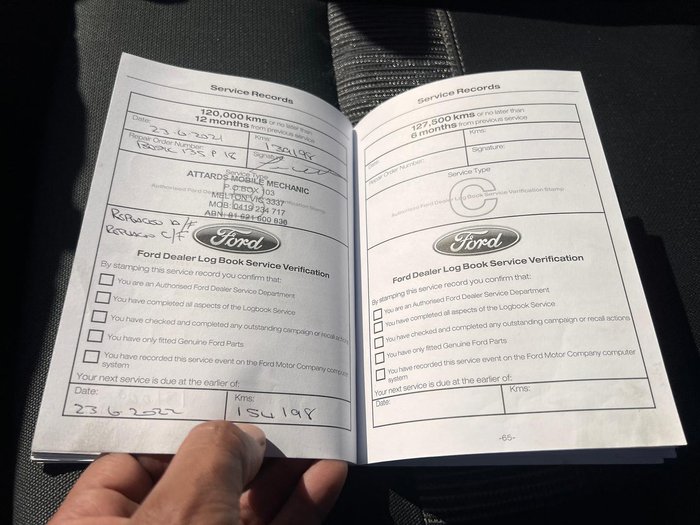 Service Records
120,000 kms or no later than
12 months from previous service
Date: 23.6.2021
Kms: 139198
Repair Order Number:
Signature:
Service Type
ATTARDS MOBILE MECHANIC
P.O BOX 103
MELTON VIC 3337
MOB: 0419 234 717
ABN: 81 621 600 836
REPLACED
REPLACED C/F
Ford
Ford Dealer Log Book Service Verification
By stamping this service record you confirm that:
You are an Authorised Ford Dealer Service Department
You have completed all aspects of the Logbook Service
You have checked and completed any outstanding campaign or recall actions
You have only fitted Genuine Ford Parts
You have recorded this service event on the Ford Motor Company computer
system
Your next service is due at the earlier of:
Date: 23.6.2022
Kms: 154198
Service Records
127,500 kms or no later than
6 months from previous service
Date:
Kms:
Repair Order Number:
Signature:
Service Type
C
Authorised Ford Dealer Log Book Service Verification Stamp
Ford
Ford Dealer Log Book Service Verification
By stamping this service record you confirm that:
You are an Authorised Ford Dealer Service Department
You have completed all aspects of the Logbook Service
You have checked and completed any outstanding campaign or recall actions
You have only fitted Genuine Ford Parts
You have recorded this service event on the Ford Motor Company computer
system
Your next service is due at the earlier of:
Date:
Kms:
-65-